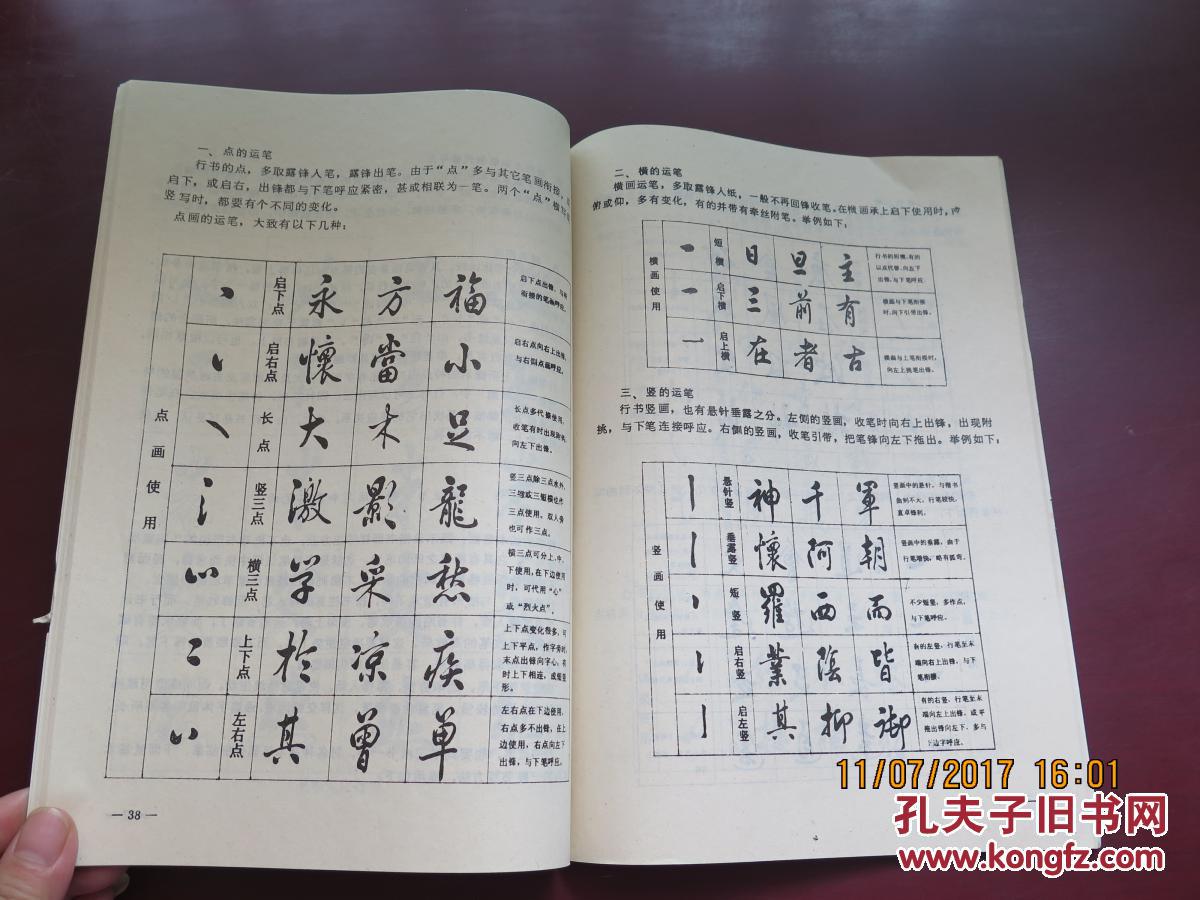 一、点的运笔
行书的点，多取露锋人笔，露锋出笔。由于“点”多与其它笔画衔接，
启下，或启右，出锋都与下笔呼应紧密，甚或相联为一笔。两个“点”横
竖写时，都要有个不同的变化。
点画的运笔，大致有以下几种：
点画使用
启下点 永 方 福
启下点出锋，与所
衔接的笔画呼应。
启右点 懷 當 小
启右点向右上出锋，
与右侧点画呼应。
长点 大 木 足
长点多代捺使用，
收笔有时出现附钩，
向左下出锋。
竖三点 激 影 龍
竖三点除三点水外，
三堆或三短横也作
三点使用。双人旁
也可作三点。
横三点 学 采 愁
横三点可分上、中、
下使用，在下边使用
时，可代用“心”
或“烈火点”。
上下点 於 凉 疾
上下点变化很多，可
上下平点，作字旁时，
末点出锋向字心，有
时上下相连，成竖
形。
左右点 其 曾 单
左右点在下边使用，
右点多不出锋，在上
边使用，右点向左下
出锋，与下笔呼应。
— 38 —
二、横的运笔
横画运笔，多取露锋人纸，一般不再回锋收笔。在横画承上启下使用时，
俯或仰，多有变化，有的并带有牵丝附笔。举例如下：
横画使用
短横 日 旦 主
行书的短横，有的
以点代替，向左下
出锋，与下笔呼应
启下横 三 前 有
横画与下笔衔接
时，向下引带出锋。
启上横 在 者 古
横画与上笔衔接时，
向左上挑笔出锋。
三、竖的运笔
行书竖画，也有悬针垂露之分。左侧的竖画，收笔时向右上出锋，出现附
挑，与下笔连接呼应。右侧的竖画，收笔引带，把笔锋向左下拖出。举例如下：
竖画使用
悬针竖 神 千 軍
竖画中的悬针，与楷书
曲别不大，行笔较快，
直卓锋利。
垂露竖 懷 阿 朝
竖画中的垂露，由于
行笔增快，略有弧弯。
短竖 羅 西 而
不少短竖，多作点，
与下笔呼应。
启右竖 業 陰 皆
有的左竖，行笔至末
端向右上出锋，与下
笔衔接。
启左竖 其 抑 御
有的右竖，行笔至末
端向左上出锋，或平
拖出锋向左下，多与
下边字呼应。
11/07/2017 16:01
孔夫子旧书网
www.kongfz.com